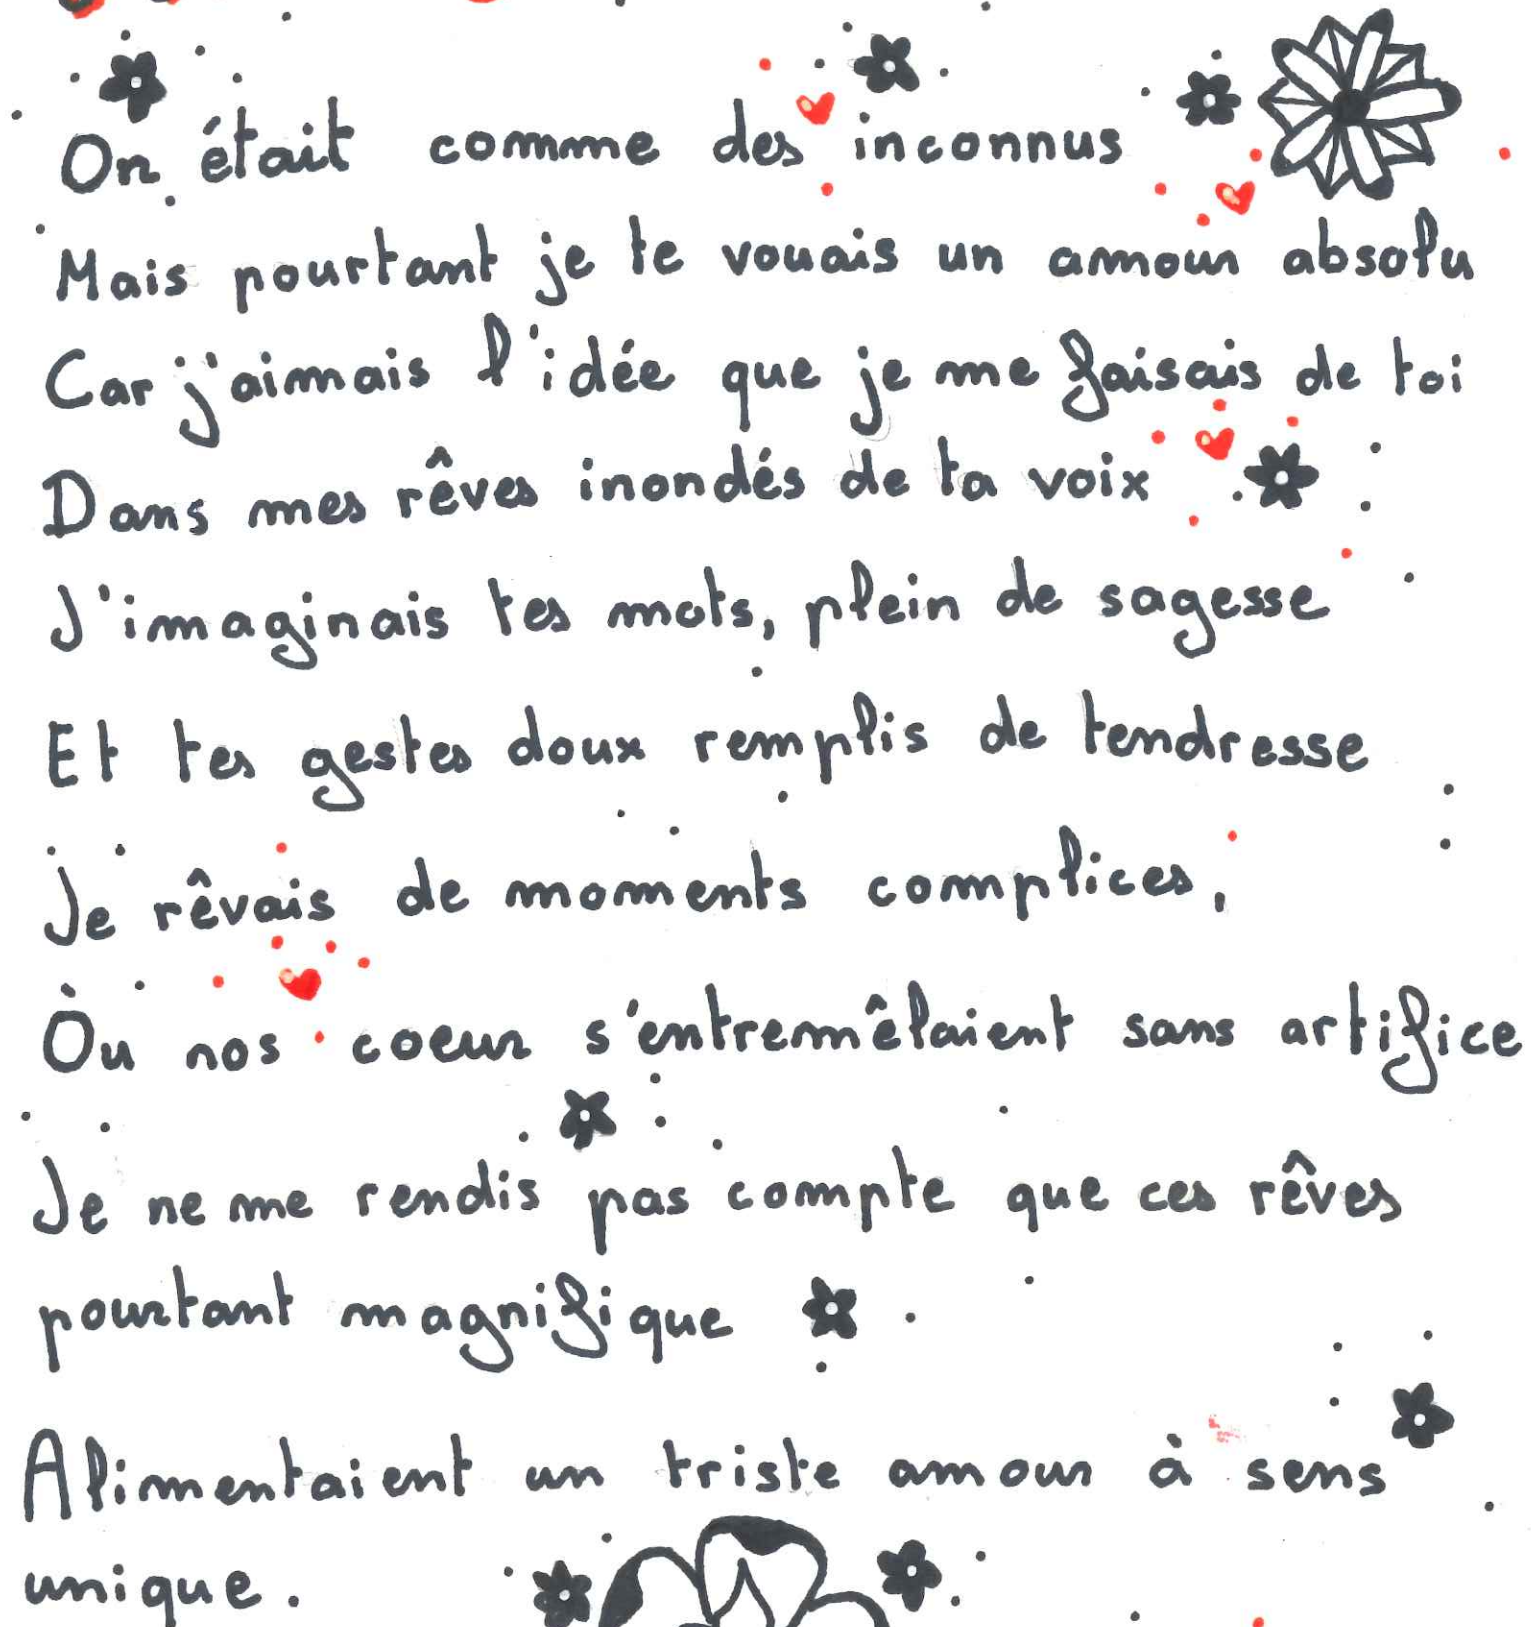 On était comme des inconnus
Mais pourtant je te vouais un amour absolu
Car j'aimais l'idée que je me faisais de toi
Dans mes rêves inondés de ta voix
J'imaginais tes mots, plein de sagesse
Et tes gestes doux remplis de tendresse
Je rêvais de moments complices,
Òu nos coeur s'entremêlaient sans artifice
Je ne me rendis pas compte que ces rêves
pourtant magnifique
Alimentaient un triste amour à sens
unique.